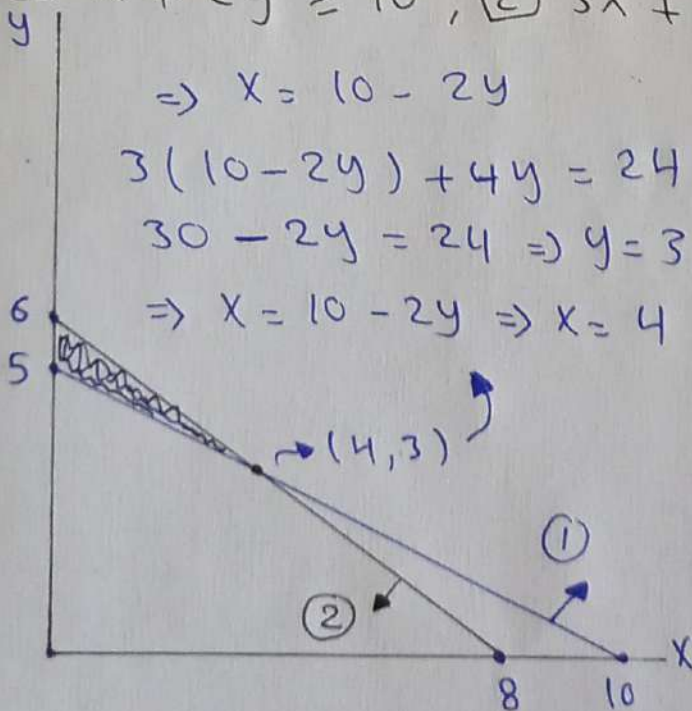 2y = 10 , 2 3x +
y
=> x = 10 - 2y
3(10-2y) + 4y = 24
30 - 2y = 24 => y = 3
=> x = 10 - 2y => x = 4
6
5
(4,3)
①
②
x
8 10